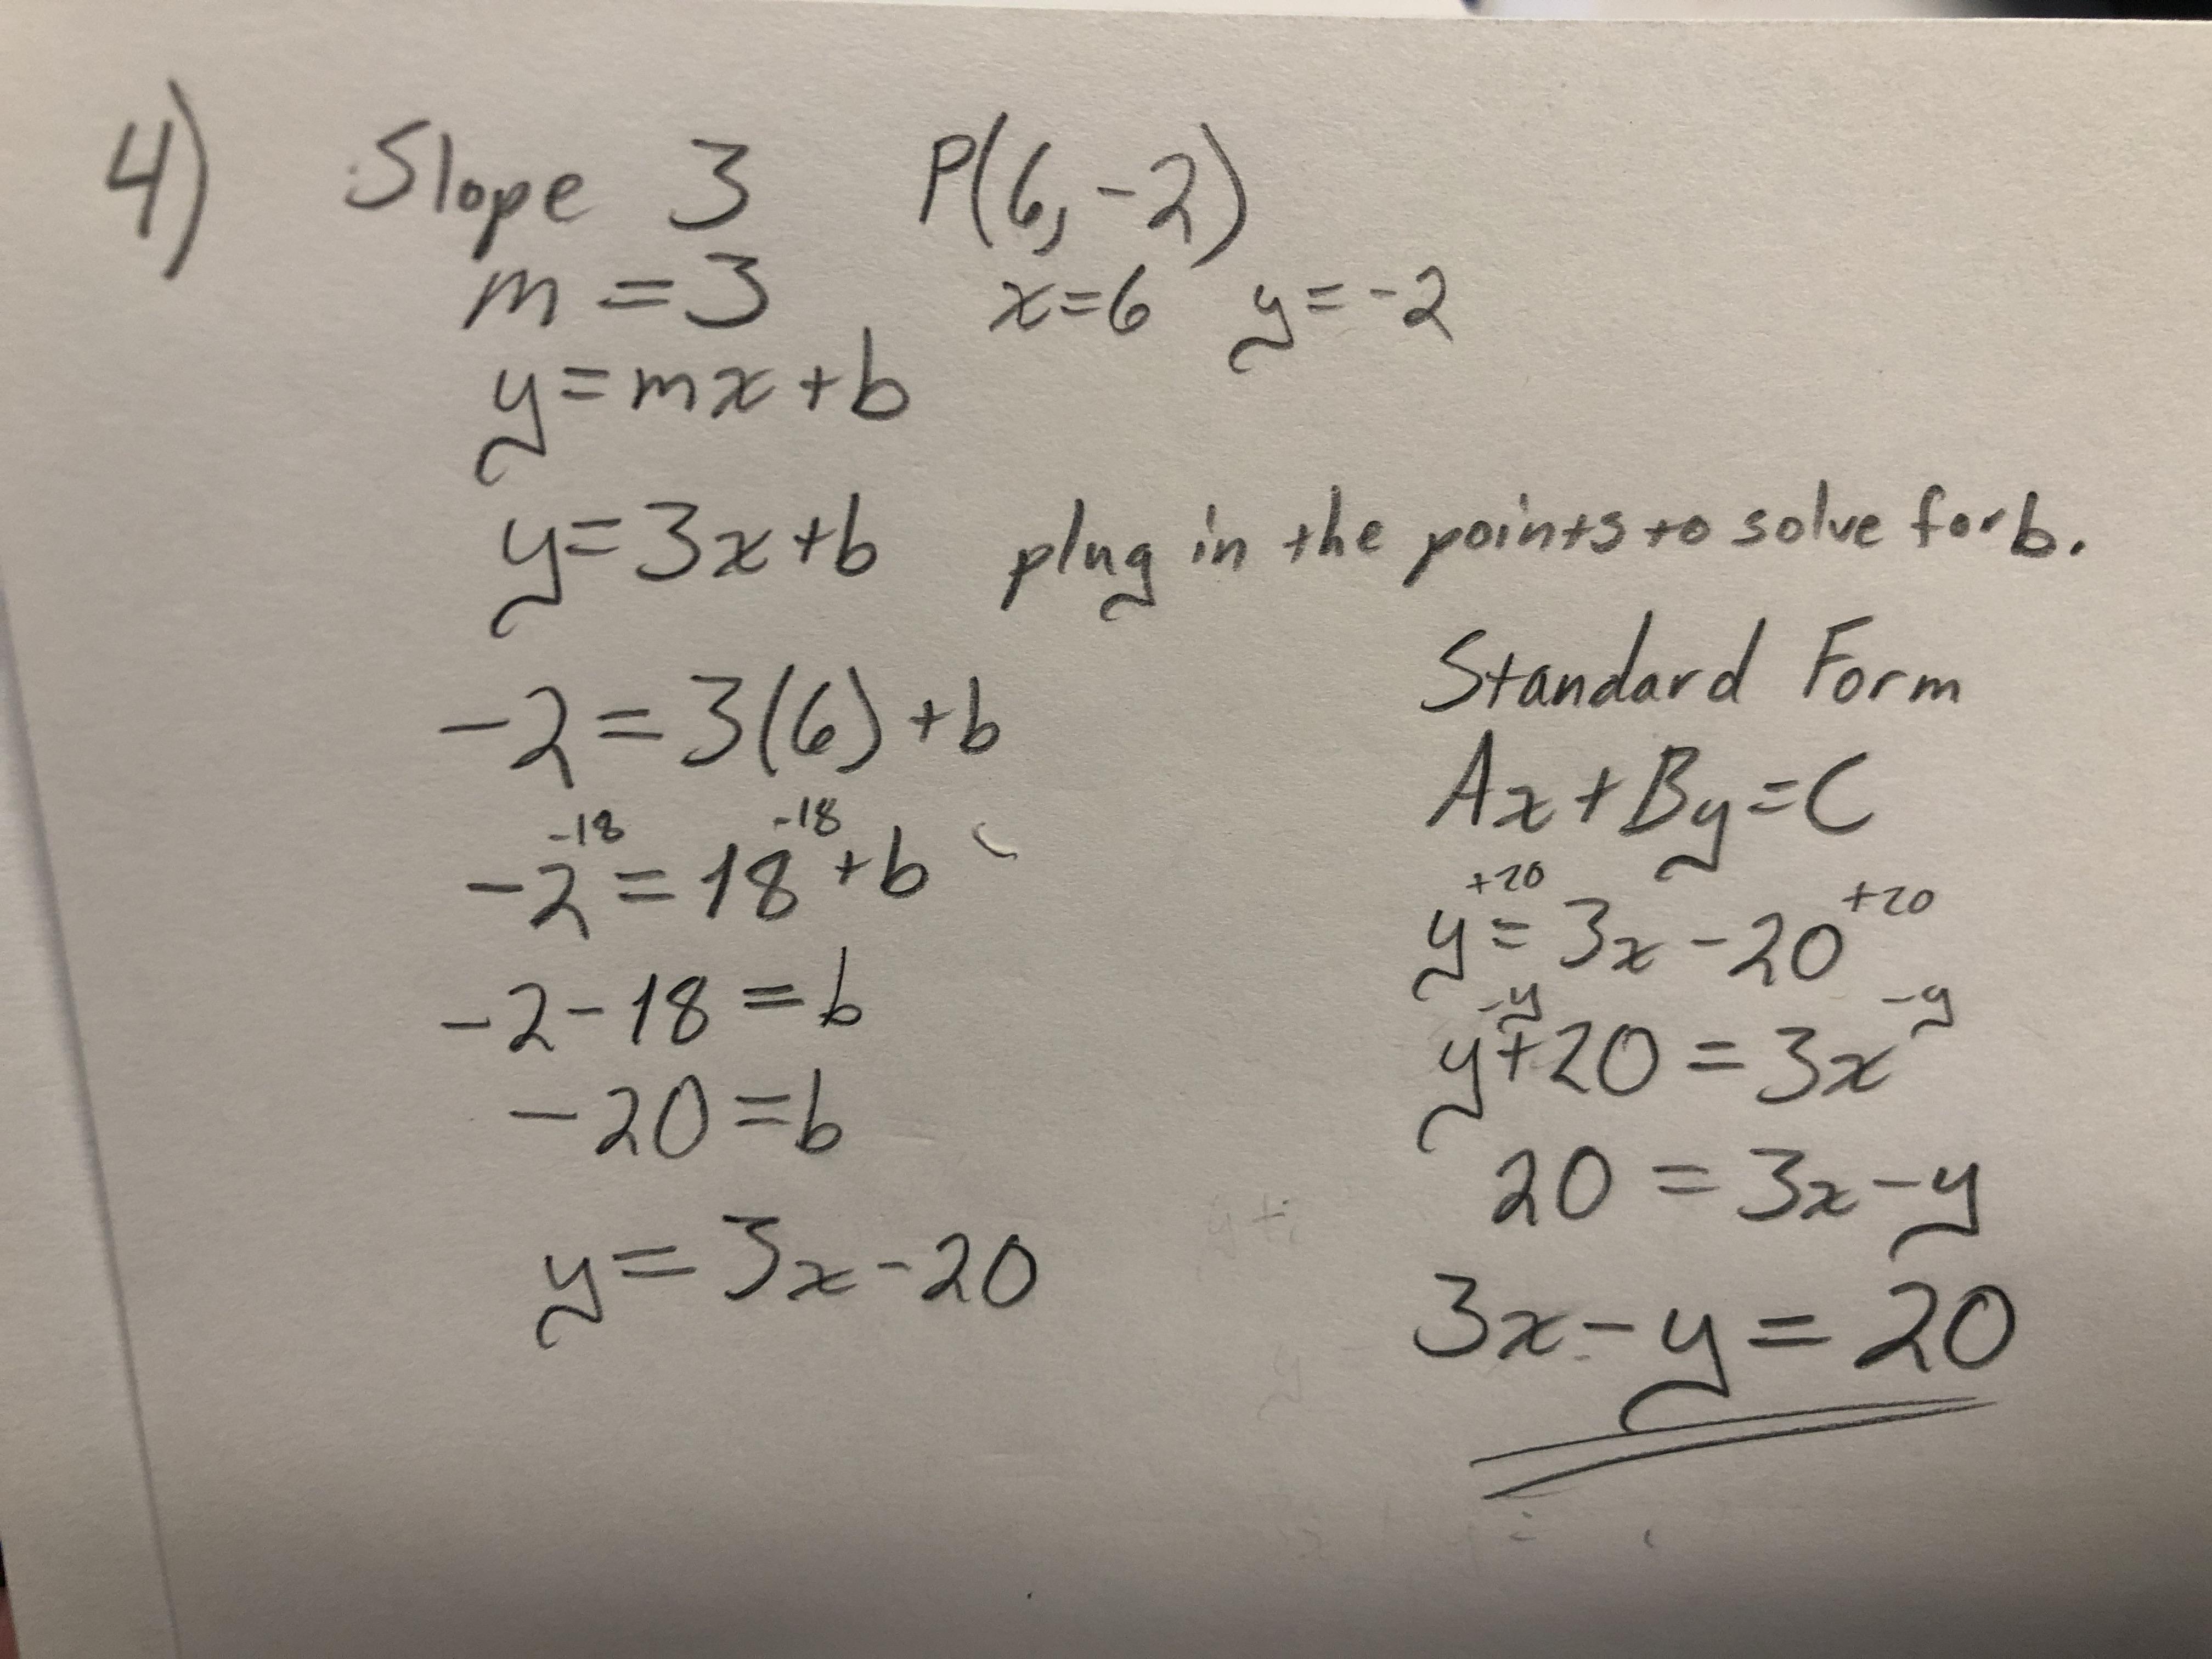 4) Slope 3 P(6, -2)
m = 3 x=6 y=-2
y=mx+b
y=3x+b plug in the points to solve for b.
-2=3(6)+b
-18 -18
-2=18+b
-2-18=b
-20=b
y=3x-20
Standard Form
Ax+By=C
+20 +20
y=3x-20
-y -y
y+20=3x
20=3x-y
3x-y=20